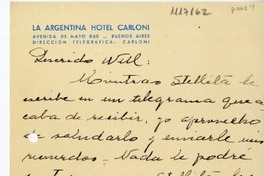 1117162
LA ARGENTINA HOTEL CARLONI
AVENIDA DE MAYO 860 — BUENOS AIRES
DIRECCION TELEGRAFICA: CARLONI
Querido Will:
Mientras Stellita le
escribe en un telegrama que a-
caba de recibir, yo aprovecho
de saludarlo y enviarle mis
recuerdos — Nada le podré